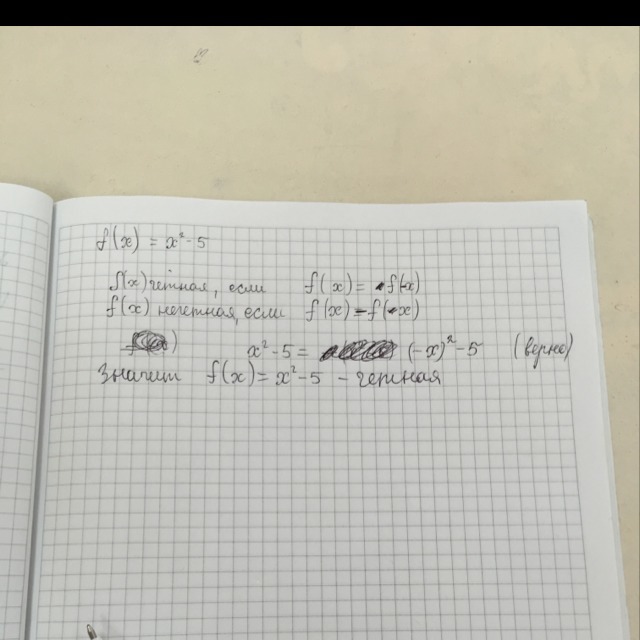 f(x) = x² - 5
f(x) чётная, если f(x) = f(-x)
f(x) нечетная, если f(x) = -f(x)
x² - 5 = (-x)² - 5 (верно)
Значит f(x) = x² - 5 - четная